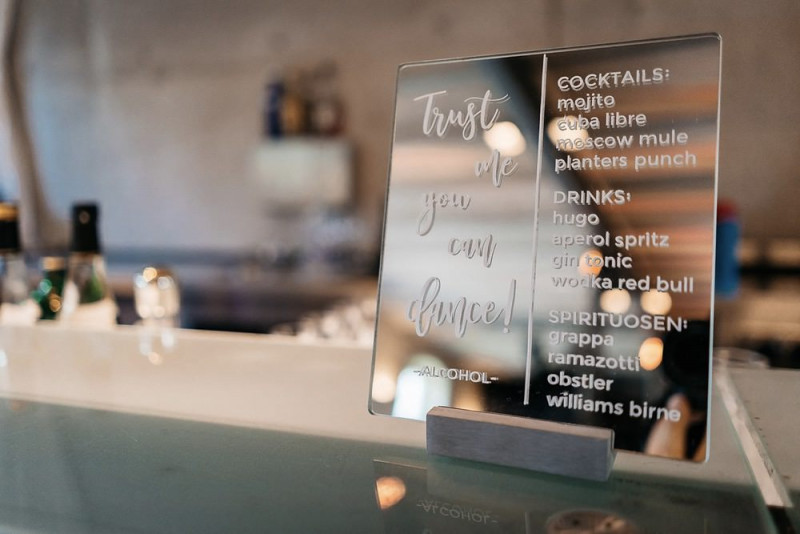 Trust
me
you
can
dance!
-ALCOHOL-
COCKTAILS:
mojito
cuba libre
moscow mule
planters punch
DRINKS:
hugo
aperol spritz
gin tonic
wodka red bull
SPIRITUOSEN:
grappa
ramazotti
obstler
williams birne